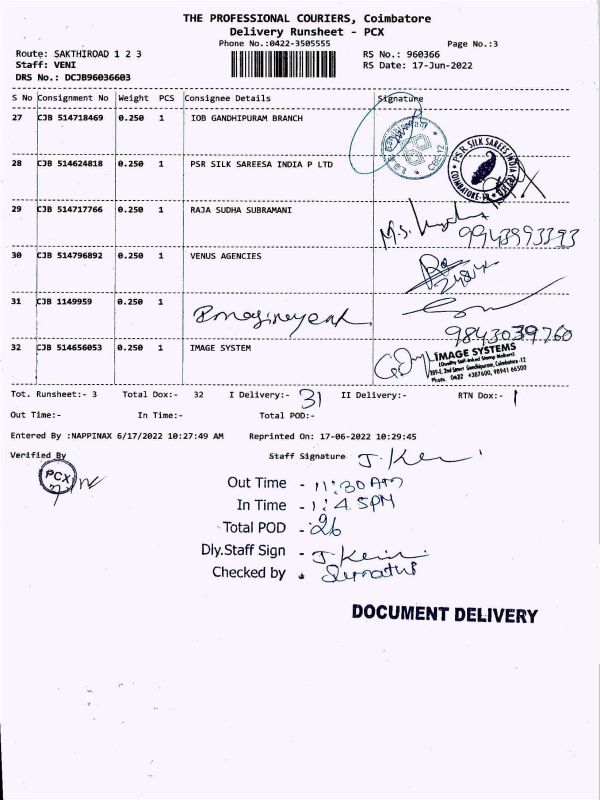 THE PROFESSIONAL COURIERS, Coimbatore
Delivery Runsheet - PCX
Phone No.:0422-3505555
Page No.:3
Route: SAKTHIROAD 1 2 3
RS No.: 960366
Staff: VENI
RS Date: 17-Jun-2022
DRS No.: DCJB96036603
S No Consignment No Weight PCS Consignee Details Signature
27 CJB 514718469 0.250 1 IOB GANDHIPURAM BRANCH
28 CJB 514624818 0.250 1 PSR SILK SAREESA INDIA P LTD
PSR SILK SAREES INDIA
COIMBATORE-12
29 CJB 514717766 0.250 1 RAJA SUDHA SUBRAMANI
M.S.
9943993393
30 CJB 514796892 0.250 1 VENUS AGENCIES
31 CJB 1149959 0.250 1
9843039760
32 CJB 514656053 0.250 1 IMAGE SYSTEM
IMAGE SYSTEMS
(Quality Self-Inked Stamp Makers)
Phone: 0422 4387600, 98941 66500
Tot. Runsheet:- 3 Total Dox:- 32 I Delivery:- 31 II Delivery:- RTN Dox:- 1
Out Time:- In Time:- Total POD:-
Entered By :NAPPINAX 6/17/2022 10:27:49 AM Reprinted On: 17-06-2022 10:29:45
Verified By Staff Signature
PCX
Out Time - 11:30 AM
In Time - 1:45PM
Total POD - 26
Dly.Staff Sign -
Checked by -
DOCUMENT DELIVERY